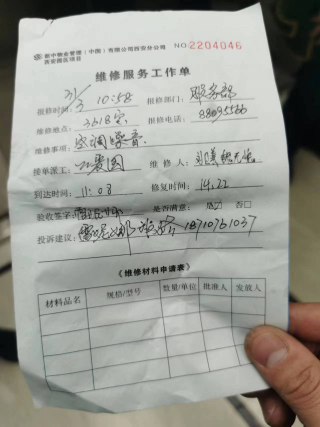 新中物业管理(中国)有限公司西安分公司 NO 2204046
西安园区项目
维修服务工作单
报修时间: 31/3 10:58 报修部门: 服务部
维修地点: 3618室 报修电话: 88095566
维修事项: 空调噪音.
接单派工: 维修人:
到达时间: 11:08 修复时间: 14:22
验收签字: 是否满意: 是☑ 否□
投诉建议: 18710761037
《维修材料申请表》
材料品名 规格/型号 数量/单位 批准人 发放人